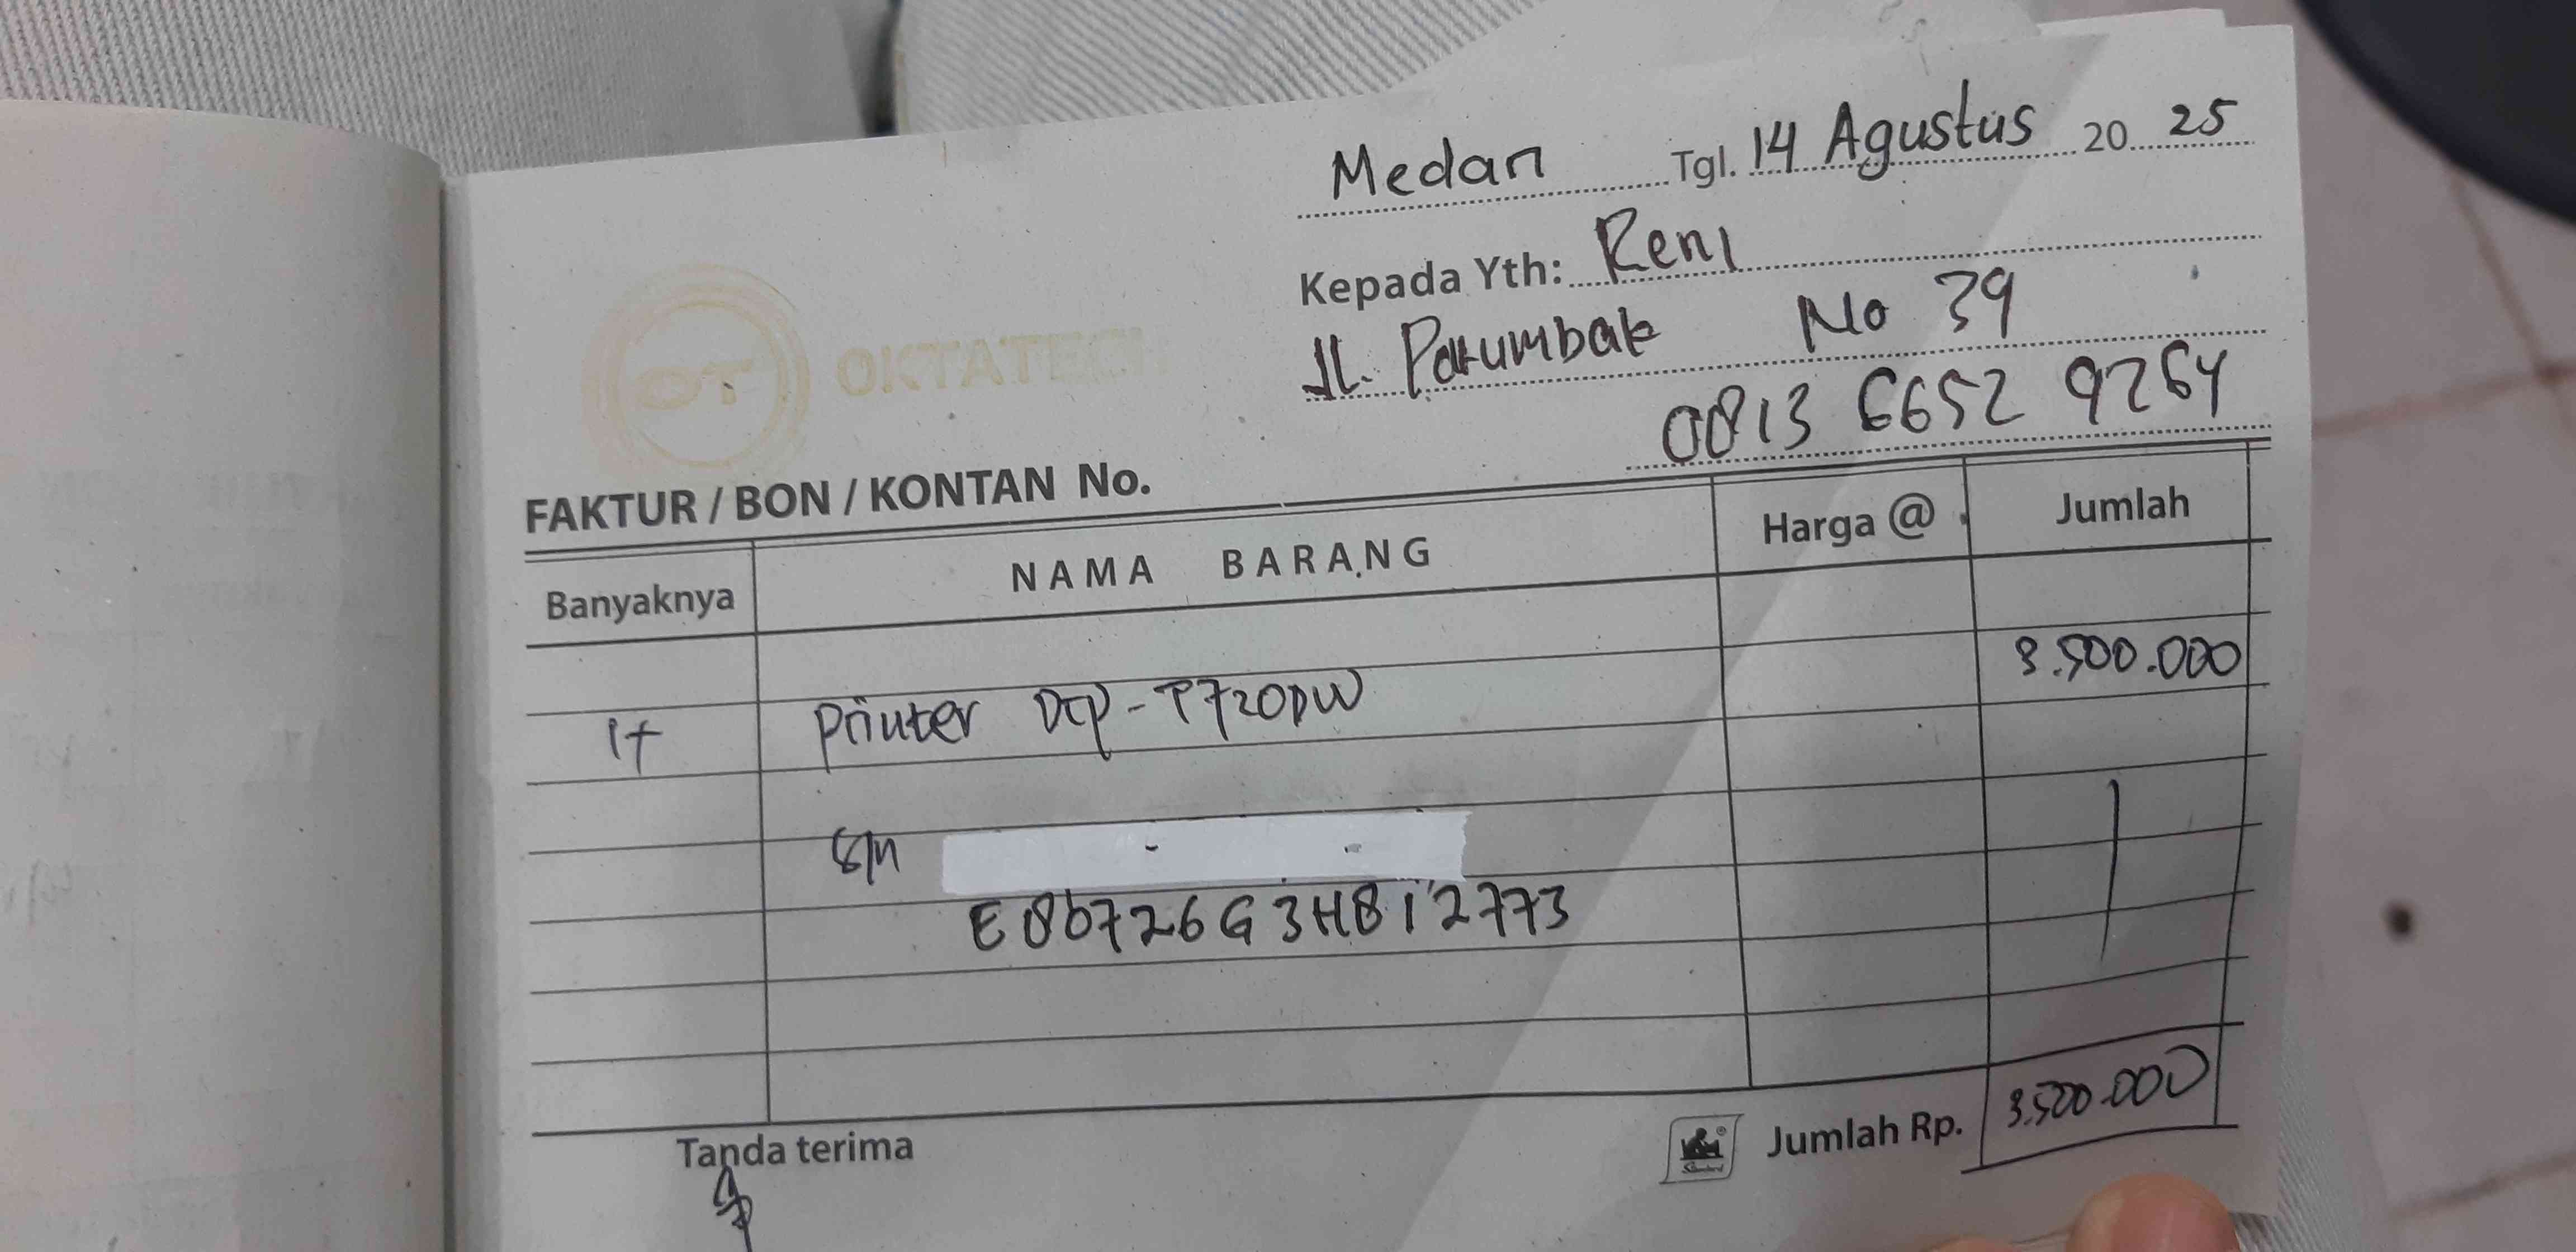 Medan Tgl. 14 Agustus 20 25
Kepada Yth: Reni
Jl. Patumbak No 39
0813 6652 9264
OT OKTATECH
FAKTUR / BON / KONTAN No.
Banyaknya NAMA BARANG Harga @ Jumlah
3.500.000
1+ Printer DCP-T720DW
S/N
E80726G3H812773
Tanda terima
Standard
Jumlah Rp. 3.500.000